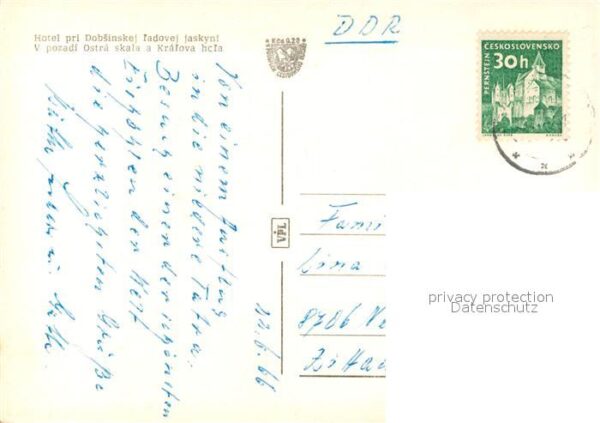 Hotel pri Dobšinskej ľadovej jaskyni
V pozadí Ostrá skala a Kráľova hoľa
Kčs 0,20
DDR
ČESKOSLOVENSKO
30h
PERNŠTEJN
Von einem Ausflug
in die niedere Tatra.
Besuch einer der
Eishöhlen der Welt
die herzlichsten Grüße
22.6.66
VPL
Fami
8786
Zitta
privacy protection
Datenschutz